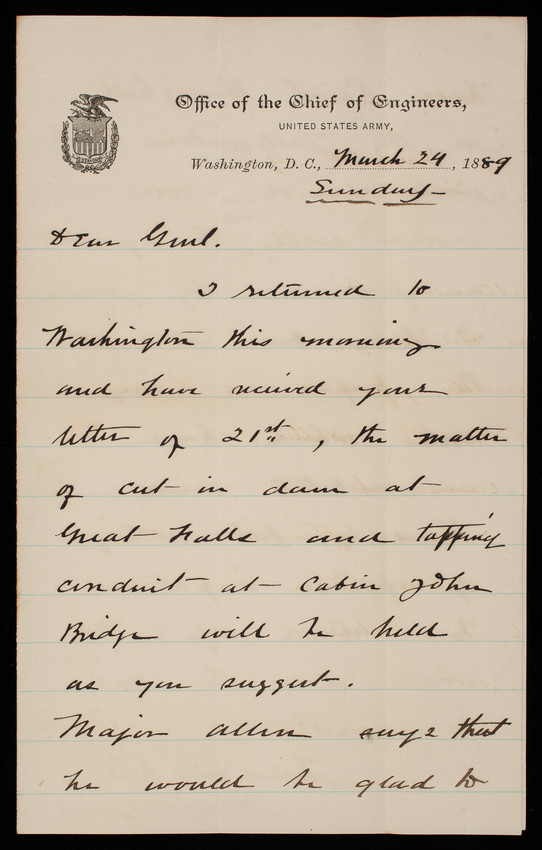 Office of the Chief of Engineers,
UNITED STATES ARMY,
Washington, D. C., March 24, 1889
Sunday
Dear Genl.
I returned to
Washington this morning
and have received your
letter of 21st, the matter
of cut in dam at
Great Falls and tapping
conduit at Cabin John
Bridge will be held
as you suggest.
Major Allen says that
he would be glad to